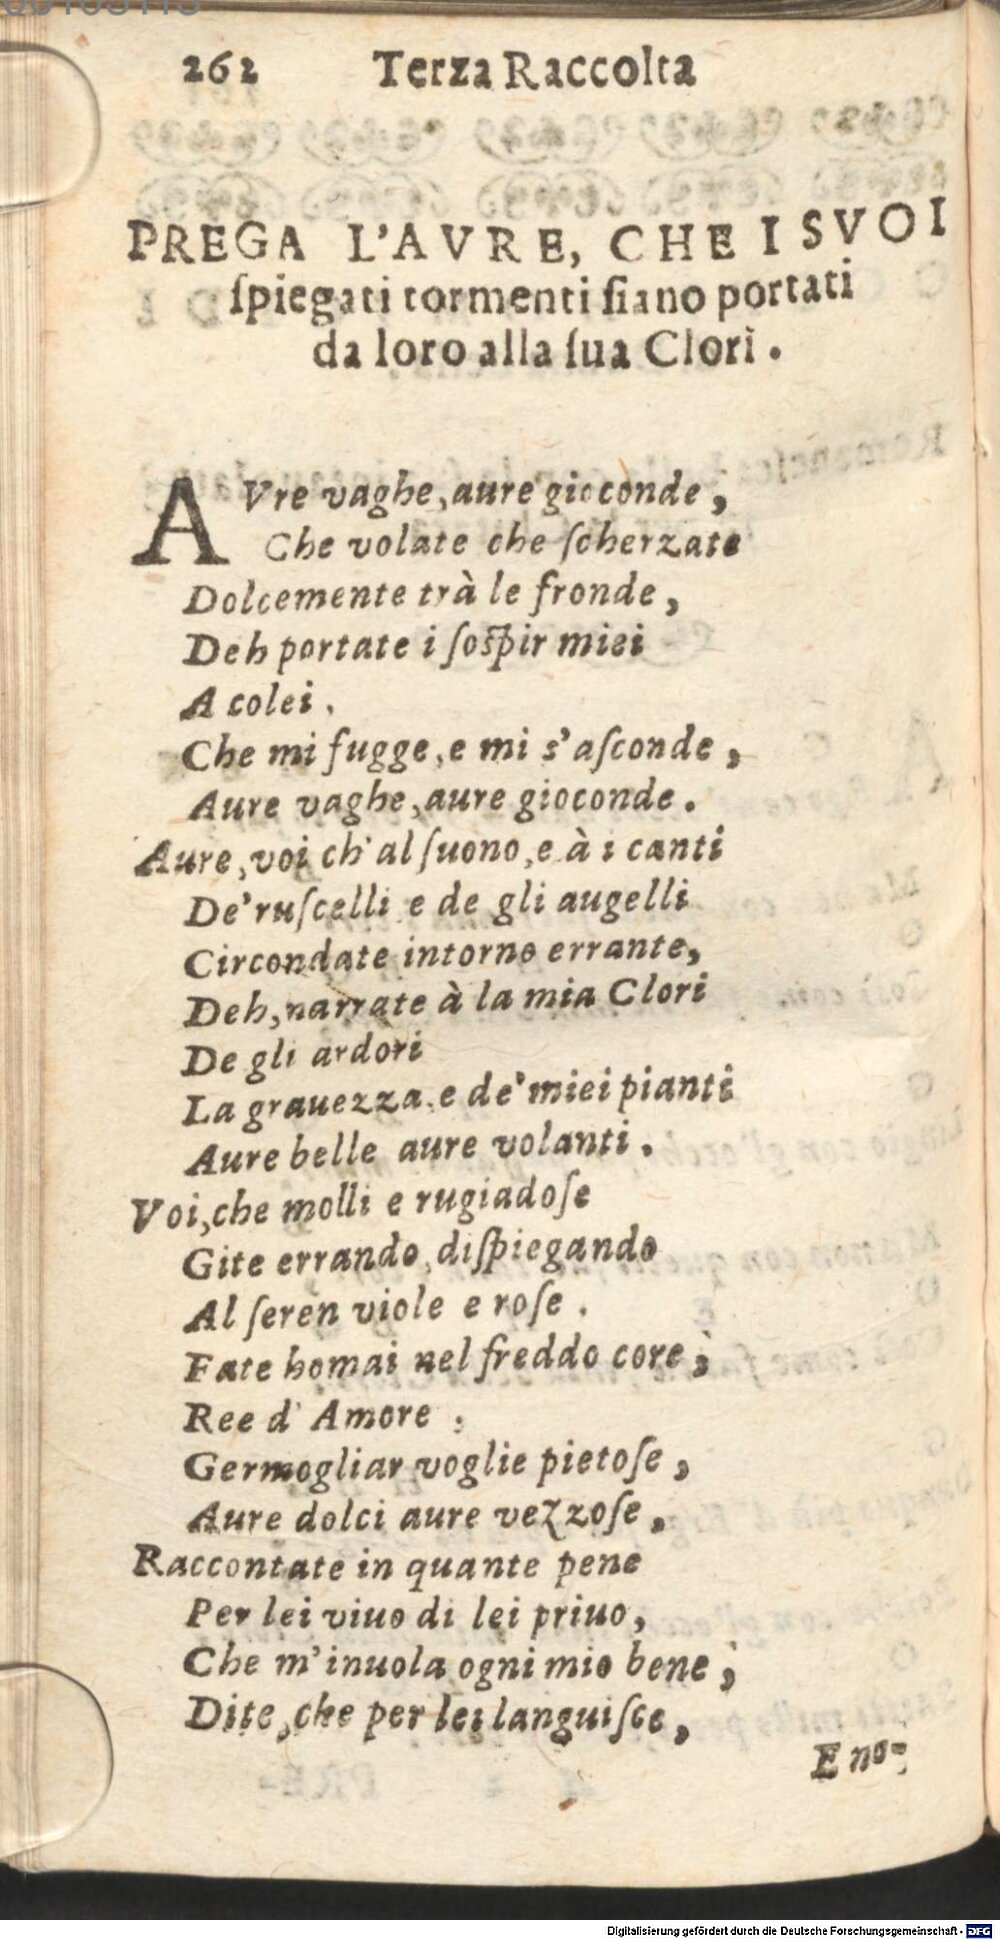 262 Terza Raccolta
PREGA L'AVRE, CHE I SVOI
ſpiegati tormenti ſiano portati
da loro alla ſua Clori.
AVre vaghe, aure gioconde,
Che volate che ſcherzate
Dolcemente trà le fronde,
Deh portate i ſoſpir miei
A colei.
Che mi fugge, e mi s'aſconde,
Aure vaghe, aure gioconde.
Aure, voi ch'al ſuono, e à i canti
De'ruſcelli e de gli augelli
Circondate intorno errante,
Deh, narrate à la mia Clori
De gli ardori
La grauezza, e de'miei pianti
Aure belle aure volanti.
Voi, che molli e rugiadoſe
Gite errando, diſpiegando
Al ſeren viole e roſe.
Fate homai nel freddo core;
Ree d'Amore:
Germogliar voglie pietoſe,
Aure dolci aure vezzoſe,
Raccontate in quante pene
Per lei viuo di lei priuo,
Che m'inuola ogni mio bene;
Dite, che per lei languiſce,
E no-
Digitalisierung gefördert durch die Deutsche Forschungsgemeinschaft - DFG